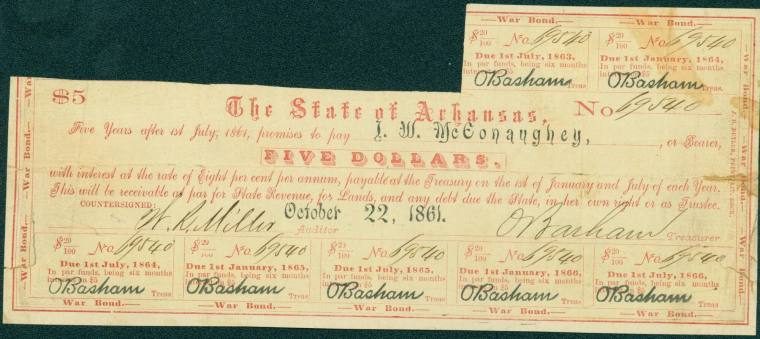 War Bond. War Bond.
$20/100 No. 69540 $20/100 No. 69540
Due 1st July, 1863, Due 1st January, 1864,
In par funds, being six months In par funds, being six months
in on $5 in on $5
O Basham Treas. O Basham Treas.
$5 The State of Arkansas, No 69540
Five Years after 1st July, 1861, promises to pay J. W. McConaughey, or Bearer,
FIVE DOLLARS,
with interest at the rate of Eight per cent per annum, payable at the Treasury on the 1st of January and July of each Year.
This will be receivable at par for State Revenue, for Lands, and any debt due the State, in her own right or as Trustee.
COUNTERSIGNED:
W. R. Miller October 22, 1861. O Basham
Auditor Treasurer
$20/100 No. 69540 $20/100 No. 69540 $20/100 No. 69540 $20/100 No. 69540 $20/100 No. 69540
Due 1st July, 1864, Due 1st January, 1865, Due 1st July, 1865, Due 1st January, 1866, Due 1st July, 1866,
In par funds, being six months In par funds, being six months In par funds, being six months In par funds, being six months In par funds, being six months
O Basham Treas O Basham Treas O Basham Treas O Basham Treas O Basham Treas
War Bond. War Bond. War Bond. War Bond. War Bond.
War Bond. War Bond.
War Bond. War Bond. War Bond.